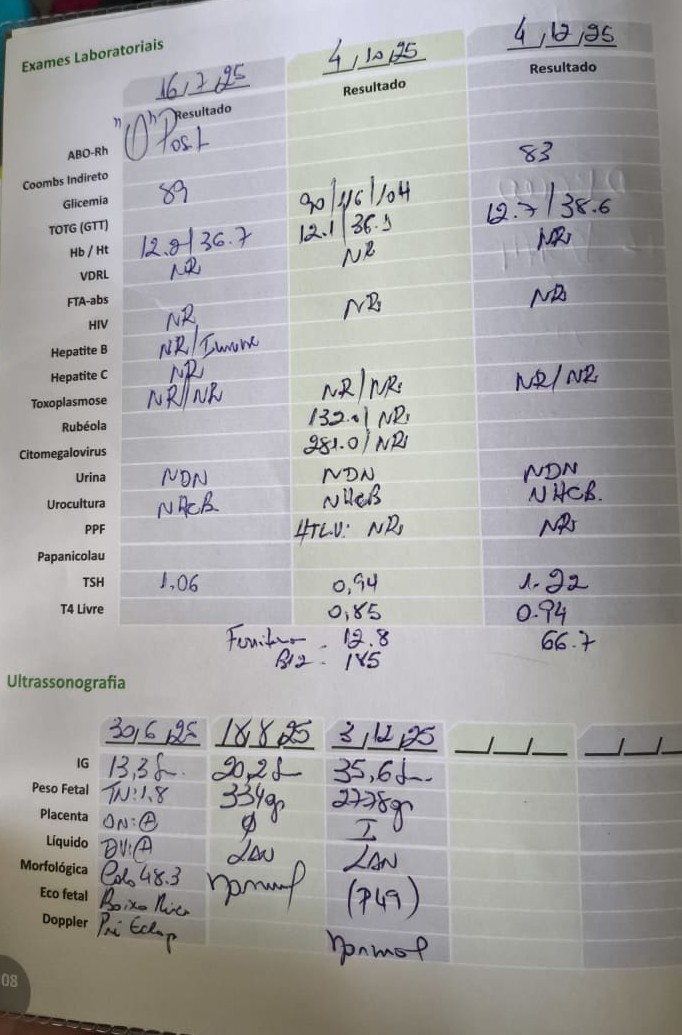 Exames Laboratoriais
16,7,25 4,10,25 4,12,25
Resultado Resultado Resultado
ABO-Rh "O" Posit
Coombs Indireto 83
Glicemia 89 90/116/104
TOTG (GTT) 12.1/36.1 12.7/38.6
Hb / Ht 12.2/36.7 NR NR
VDRL NR
FTA-abs NR NR
HIV NR
Hepatite B NR/Imune
Hepatite C NR
Toxoplasmose NR/NR NR/NR NR/NR
Rubéola 132.0/NR
Citomegalovirus 281.0/NR
Urina NDN NDN NDN
Urocultura NHCB NHCB NHCB.
PPF HTLV: NR NR
Papanicolau
TSH 1.06 0,94 1.22
T4 Livre 0,85 0.94
Ferritina - 12.8 66.7
B12 - 185
Ultrassonografia
30,6,25 18,8,25 3,12,25
IG 13,3s 20,2s 35,6s
Peso Fetal TN:1,8 334gr 2778gr
Placenta ON:(+) I
Líquido DV:(+) LAN LAN
Morfológica Colo 48.3 normal (P49)
Eco fetal Baixo Risco
Doppler Pré Eclap normal
08